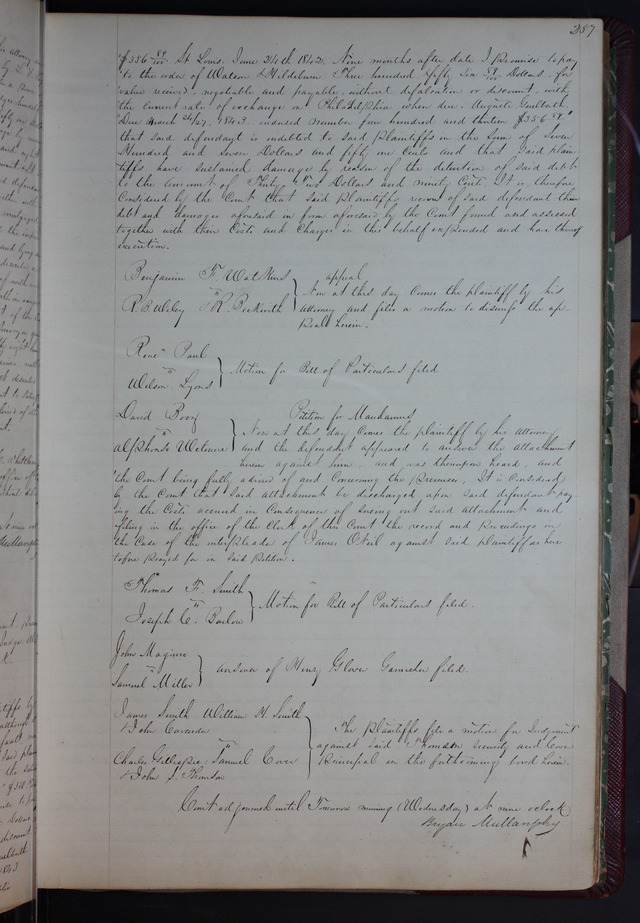 287
$356 89/100 St Louis. June 24th 1842. Nine months after date I promise to pay
to the order of Watson & Hildeburn Three hundred fifty six 89/100 Dollars, for
value received, negotiable and payable, without defalcation or discount, with
the current rate of exchange on Philadelphia when due. Auguste Guelbreth.
Due March 24/27, 1843. indorsed number four hundred and thirteen $356.89"
that said defendant is indebted to said plaintiffs in the Sum of Seven
Hundred and seven Dollars and fifty one Cents and that said plain
tiffs have sustained damage by reason of the detention of said debt
to the amount of Thirty Two Dollars and ninety Cents. It is therefore
Considered by the Court that said plaintiffs recover of said defendant their
debt and damages aforesaid in form aforesaid by the Court found and assessed
together with their Costs and Charges in this behalf expended and have thereof
execution.
Benjamin F. Watkins
vs
R. B. Wiley & R. Beckwith
appeal
Now at this day Comes the plaintiff by his
attorney and files a motion to dismiss the ap-
peal herein.
Rene Paul
vs
Wilson Lyons
Motion for Bill of Particulars filed
David
vs
Alphonso Wetmore
Petition for Mandamus
Now at this day Comes the plaintiff by his attorney
and the defendant appeared to answer the attachment
herein against him, and was thereupon heard, and
the Court being fully advised of and Concerning the premises, It is Considered
by the Court that said attachment be discharged upon said defendant pay
ing the Costs accrued in Consequence of suing out said attachment and
filing in the office of the Clerk of this Court the record and proceedings in
the Case of the interpleader of James ONeil against said plaintiff as here
tofore prayed for in said Petition.
Thomas F. Smith
vs
Joseph C. Barlow
Motion for Bill of Particulars filed.
John Maguire
vs
Samuel Miller
answer of Henry Glover Garnishee filed.
James Smith William H. Smith
& John Cavender
vs
Charles Gillespie, Samuel Cover
& John S. Thomson
The plaintiffs file a motion for Judgment
against said Thomson Security and Cover
Principal in the forthcoming bond herein.
Court adjourned until Tomorrow morning (Wednesday) at nine oclock
Bryan Mullanphy